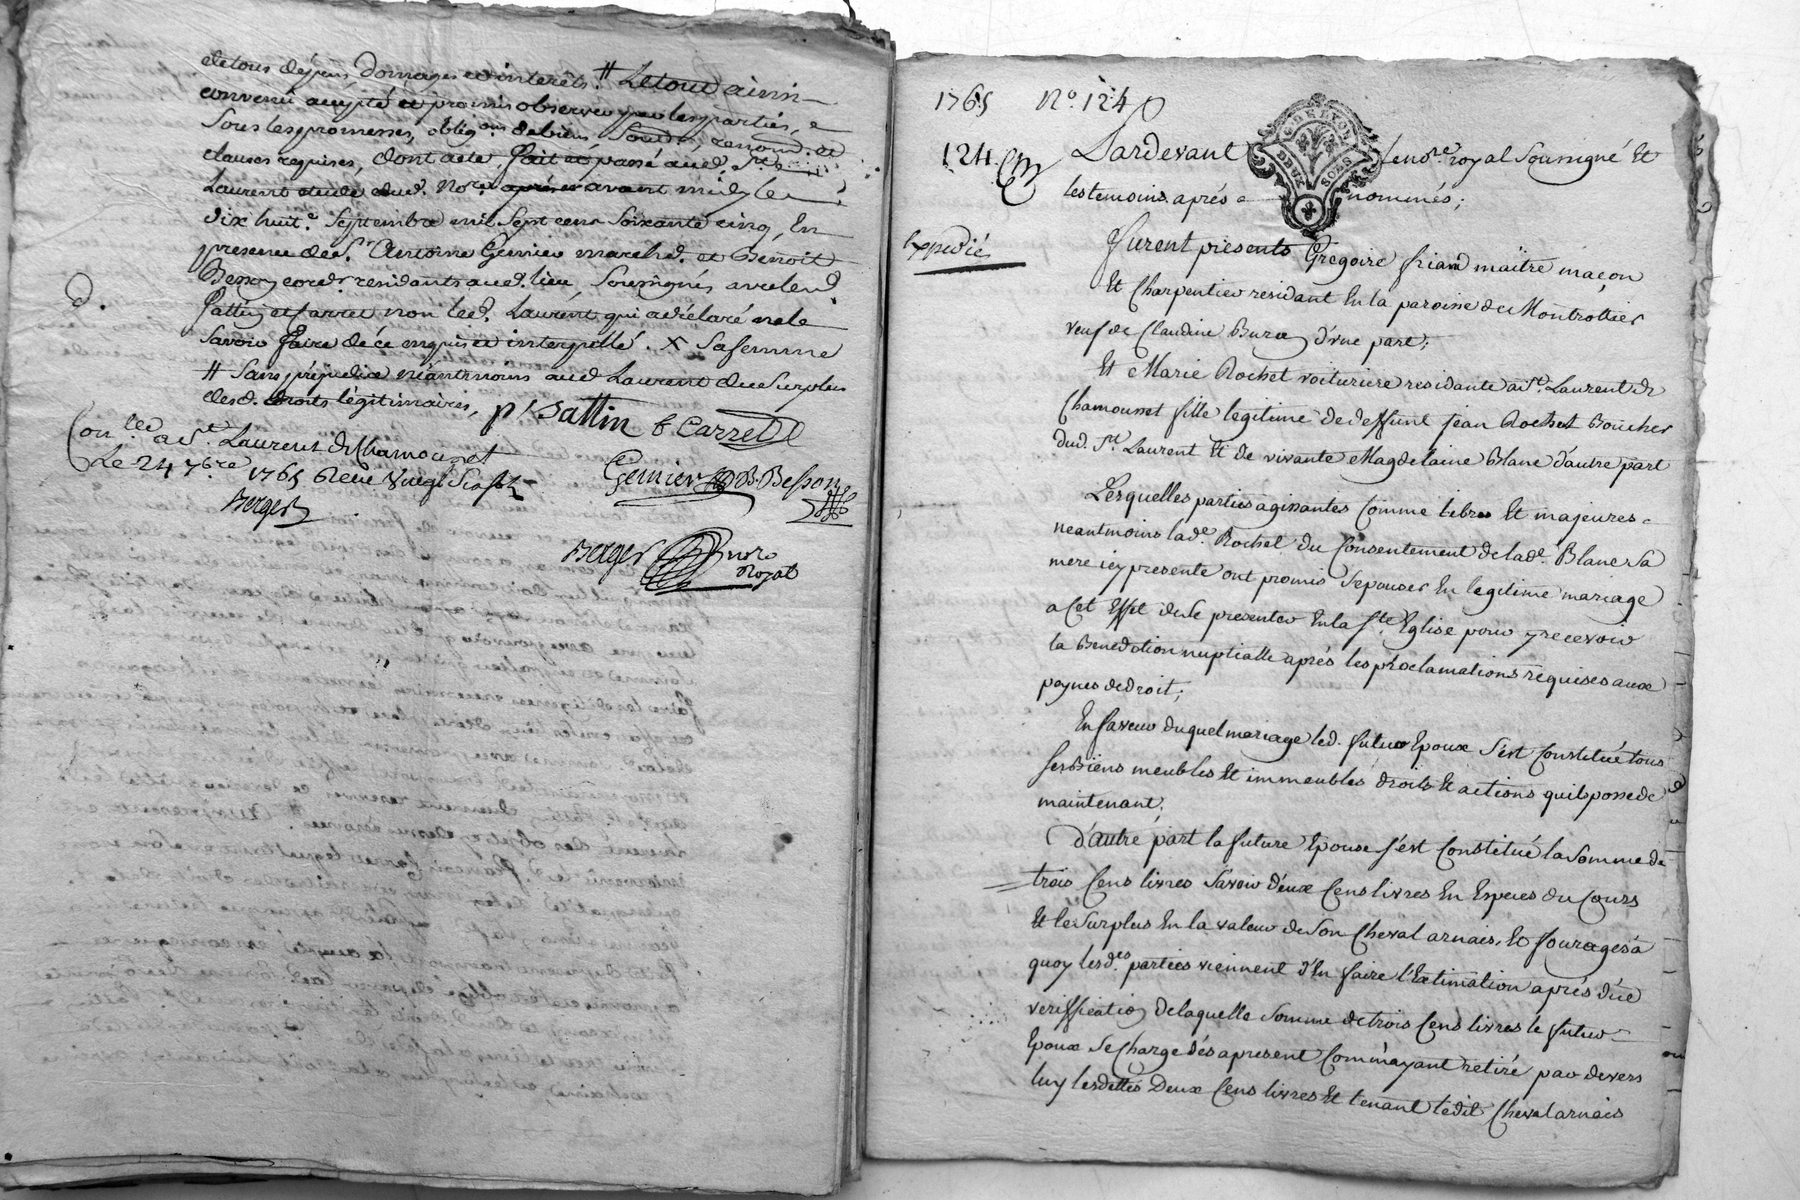 de tous dépens Domages et interêts. # Le tout ainsi
convenu accepté et promis observer par les parties, 
Sous les promesses, oblig.ons de biens Soumis. renon.s et
clauses requises, dont acte, fait et passé aud. St.
Laurent etude dud. No.re avant midy le
dix huit.e Septembre mil Sept cens Soixante cinq, En
presence de S.r Antoine Gernier march.d et Benoit
Besson cord.r residants aud. lieu, Soussignés avec led.
Pattin et Carret non led. Laurent qui a déclaré ne le
Savoir faire de ce enquis et interpellé. X Sa femme
# Sans préjudice néantmoins aud Laurent du Surplus
desd. droits légitimaires,
p. pattin b Carret
Con.lée a St. Laurent de Chamousset
Le 24 7bre 1765 Reçu Vingt Six s.
Berger
Gernier B. Besson
Berger no.re Royal
D.
1765 No. 124
124 Cm
Expedié
GDELYON
DEUX SOLS
Pardevant le no.re royal Soussigné Et
les temoins aprés nommés;
furent presents Gregoire friand maître maçon
Et Charpentier residant En la paroisse de Montrottier
veuf de Claudine Bura d'une part;
Et Marie Rochet voituriere residante a St. Laurent de
Chamousset fille legitime de deffunt jean Rochet Boucher
dud. St. Laurent Et de vivante Magdelaine Blanc d'autre part
Lesquelles parties agissantes Comme libres Et majeures
neantmoins lad.e Rochet du Consentement de lad.e Blanc Sa
mere icy presente ont promis S'epouser En legitime mariage
a Cet Effet de Se presenter En la S.te Eglise pour y recevoir
la Benediction nuptialle aprés les proclamations requises aux
peynes de droit;
En faveur duquel mariage led. futur Epoux s'est Constitué tous
ses Biens meubles Et immeubles droits Et actions quil possede
maintenant;
d'autre part la future Epouse s'est Constitué la Somme de
trois Cens livres Savoir deux Cens livres En Especes du Cours
Et le Surplus En la valeur de Son Cheval arnais, Et fourages a
quoy lesd.es parties viennent d'En faire l'Extimation aprés düe
veriffication de laquelle Somme de trois Cens livres le futur
Epoux Se Charge dés apresent Comme ayant retiré par devers
luy lesdittes Deux Cens livres Et tenant ledit Cheval arnais